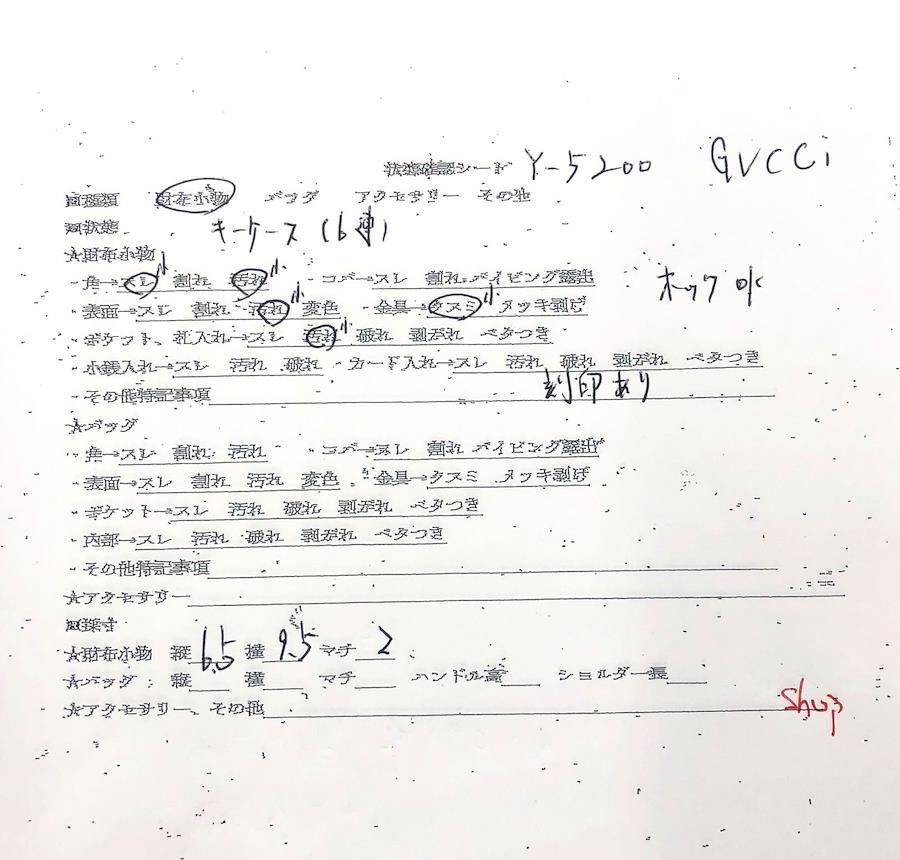 状態確認シート Y-5200 GUCCi
種類 財布小物 バッグ アクセサリー その他
状態 キーケース(6連)
★財布小物
・角→スレ小 割れ 汚れ小 ・コバ→スレ 割れ パイピング露出
ホック OK
・表面→スレ 割れ 汚れ小 変色 ・金具→クスミ小 メッキ剥げ
・ポケット、札入れ→スレ 汚れ小 破れ 剥がれ ベタつき
・小銭入れ→スレ 汚れ 破れ ・カード入れ→スレ 汚れ 破れ 剥がれ ベタつき
・その他特記事項 刻印あり
★バッグ
・角→スレ 割れ 汚れ ・コバ→スレ 割れ パイピング露出
・表面→スレ 割れ 汚れ 変色 ・金具→クスミ メッキ剥げ
・ポケット→スレ 汚れ 破れ 剥がれ ベタつき
・内部→スレ 汚れ 破れ 剥がれ ベタつき
・その他特記事項
★アクセサリー
採寸
★財布小物 縦 6.5 横 9.5 マチ 2
★バッグ 縦 横 マチ ハンドル高 ショルダー長
★アクセサリー、その他